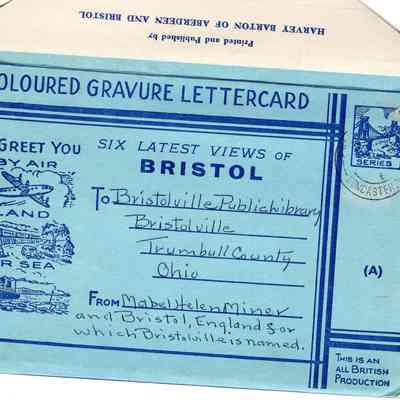 Printed and Published by
HARVEY BARTON OF ABERDEEN AND BRISTOL
OLOURED GRAVURE LETTERCARD
GREET YOU
BY AIR
LAND
R SEA
SIX LATEST VIEWS OF
BRISTOL
To Bristolville Public Library
Bristolville
Trumbull County
Ohio
FROM Mabel Helen Miner
and Bristol, England for
which Bristolville is named.
SERIES
(A)
THIS IS AN
ALL BRITISH
PRODUCTION